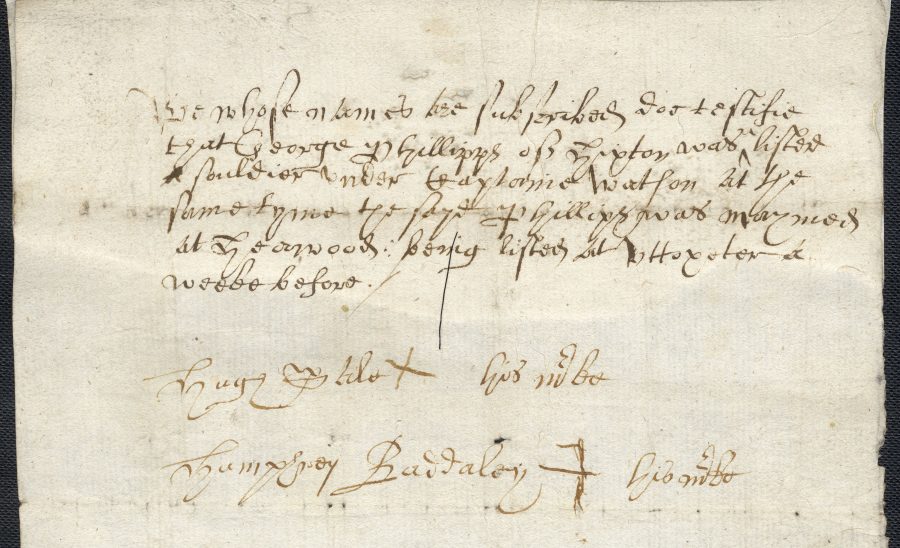 We whose names are subscribed doe testifie
that George Phillipps of Hixton was listed
A souldier under Captaine Watson At the
same tyme the sayd Phillips was maymed
at Heawood: being listed at Vttoxeter a
weeke before.
Hugh his mrke
Humphrey Baddaley his mrke